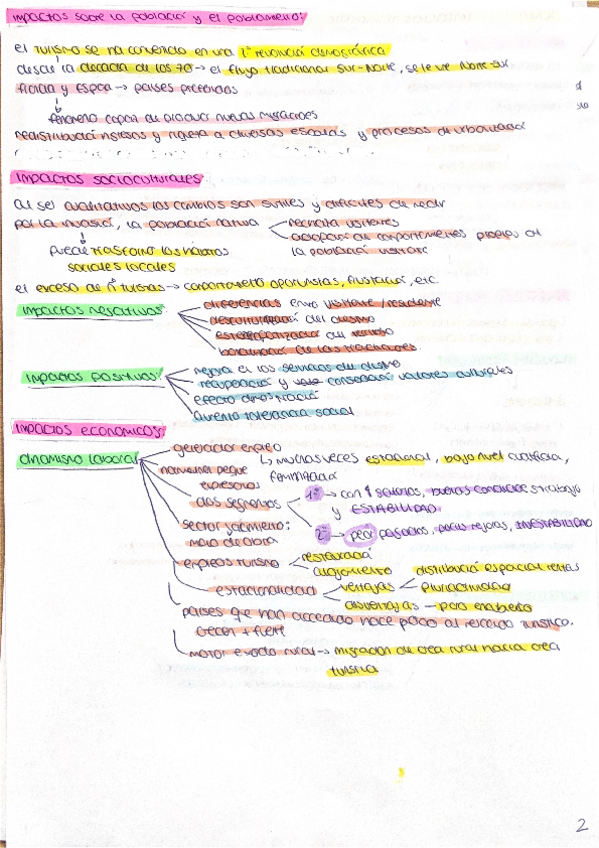 impactos sobre la població y el poblamiento:
el turismo se ha convertido en una 1ª revolución demográfica
desde la década de los 70 → el flujo tradicional sur-norte, se le ve norte-sur
y España → países preferidos
fenómeno capaz de producir nuevas migraciones
redistribució ingresos y riqueza a diversas escalas y procesos de urbanizació
impactos socioculturales
al ser cualitativos los cambios son sutiles y difíciles de medir
por la invasió, la població nativa
rechaza visitantes
adopció de comportamientos propios de
la població visitante
puede trasformar los hábitos
sociales locales
el exceso de nº turistas → comportamiento oportunistas, frustració, etc.
impactos negativos:
diferencias entre visitante/residente
del destino
del
de las tradiciones
impactos positivos:
mejora en los servicios del destino
recuperació y conservació valores culturales
efecto
aumento tolerancia social
impactos económicos:
dinamismo laboral
generador empleo
↳ muchas veces estacional, bajo nivel cualificia,
feminizado
peque
empresarios
dos segmentos
1º → con buenas condiciones
y ESTABILIDAD
2º → peor pagados, pocas mejoras, INESTABILIDAD
sector
mano de obra
empleos turismo
restauració
alojamiento
estacionalidad
ventajas
distribució espacial rentas
pluriactividad
desventajas —
países que han accedido hace poco al mercado turístico.
crecen + fuerte
motor exodo rural → migración de area rural hacia area
turística
2